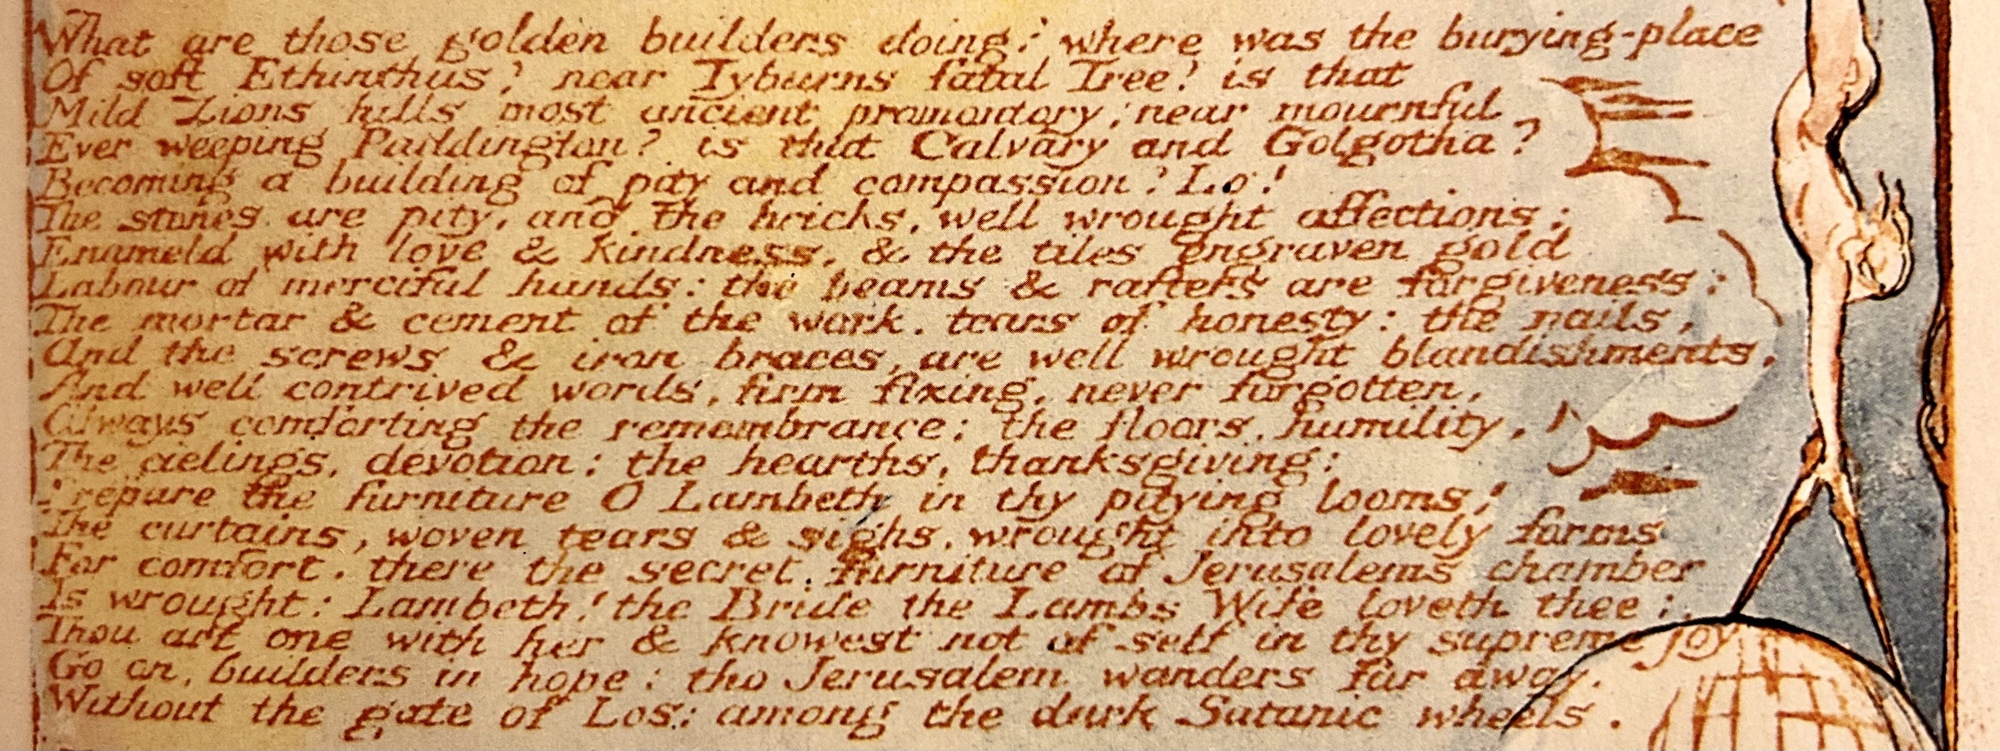 What are those golden builders doing? where was the burying-place
Of soft Ethinthus? near Tyburns fatal Tree? is that
Mild Zions hills most ancient promontory; near mournful
Ever weeping Paddington? is that Calvary and Golgotha?
Becoming a building of pity and compassion? Lo!
The stones are pity, and the bricks, well wrought affections:
Enameld with love & kindness, & the tiles engraven gold
Labour of merciful hands: the beams & rafters are forgiveness:
The mortar & cement of the work, tears of honesty: the nails,
And the screws & iron braces, are well wrought blandishments,
And well contrived words, firm fixing, never forgotten,
Always comforting the remembrance: the floors, humility,
The cielings, devotion: the hearths, thanksgiving:
Prepare the furniture O Lambeth in thy pitying looms!
The curtains, woven tears & sighs, wrought into lovely forms
For comfort. there the secret furniture of Jerusalems chamber
Is wrought: Lambeth! the Bride the Lambs Wife loveth thee:
Thou art one with her & knowest not of self in thy supreme joy.
Go on, builders in hope: tho Jerusalem wanders far away,
Without the gate of Los: among the dark Satanic wheels.